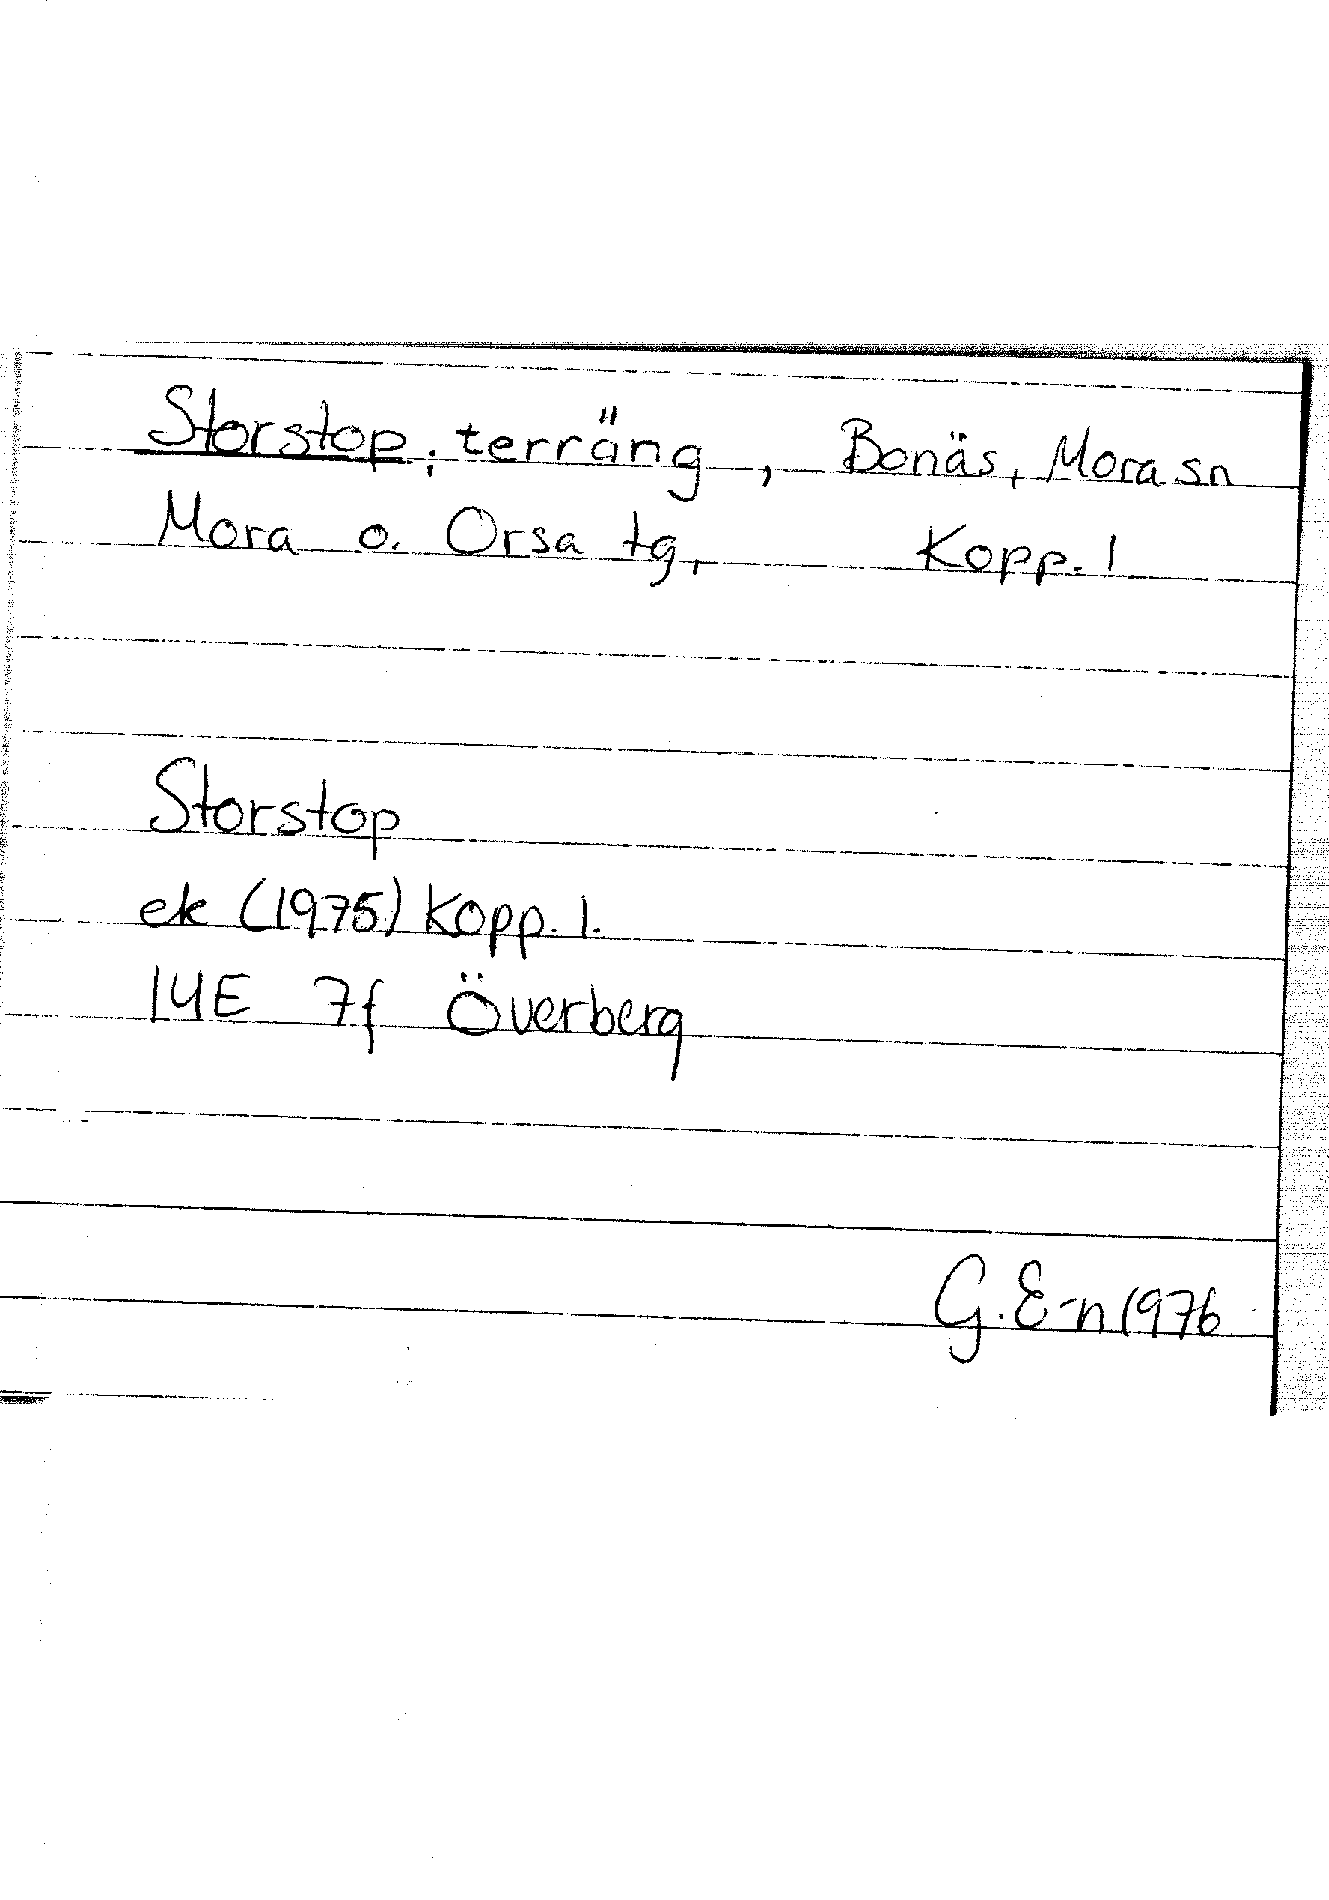 Storstop; terräng, Bonäs, Mora sn
Mora o. Orsa tg, Kopp. l
Storstop
ek (1975) Kopp. l.
14E 7f Överberg
G. E-n 1976